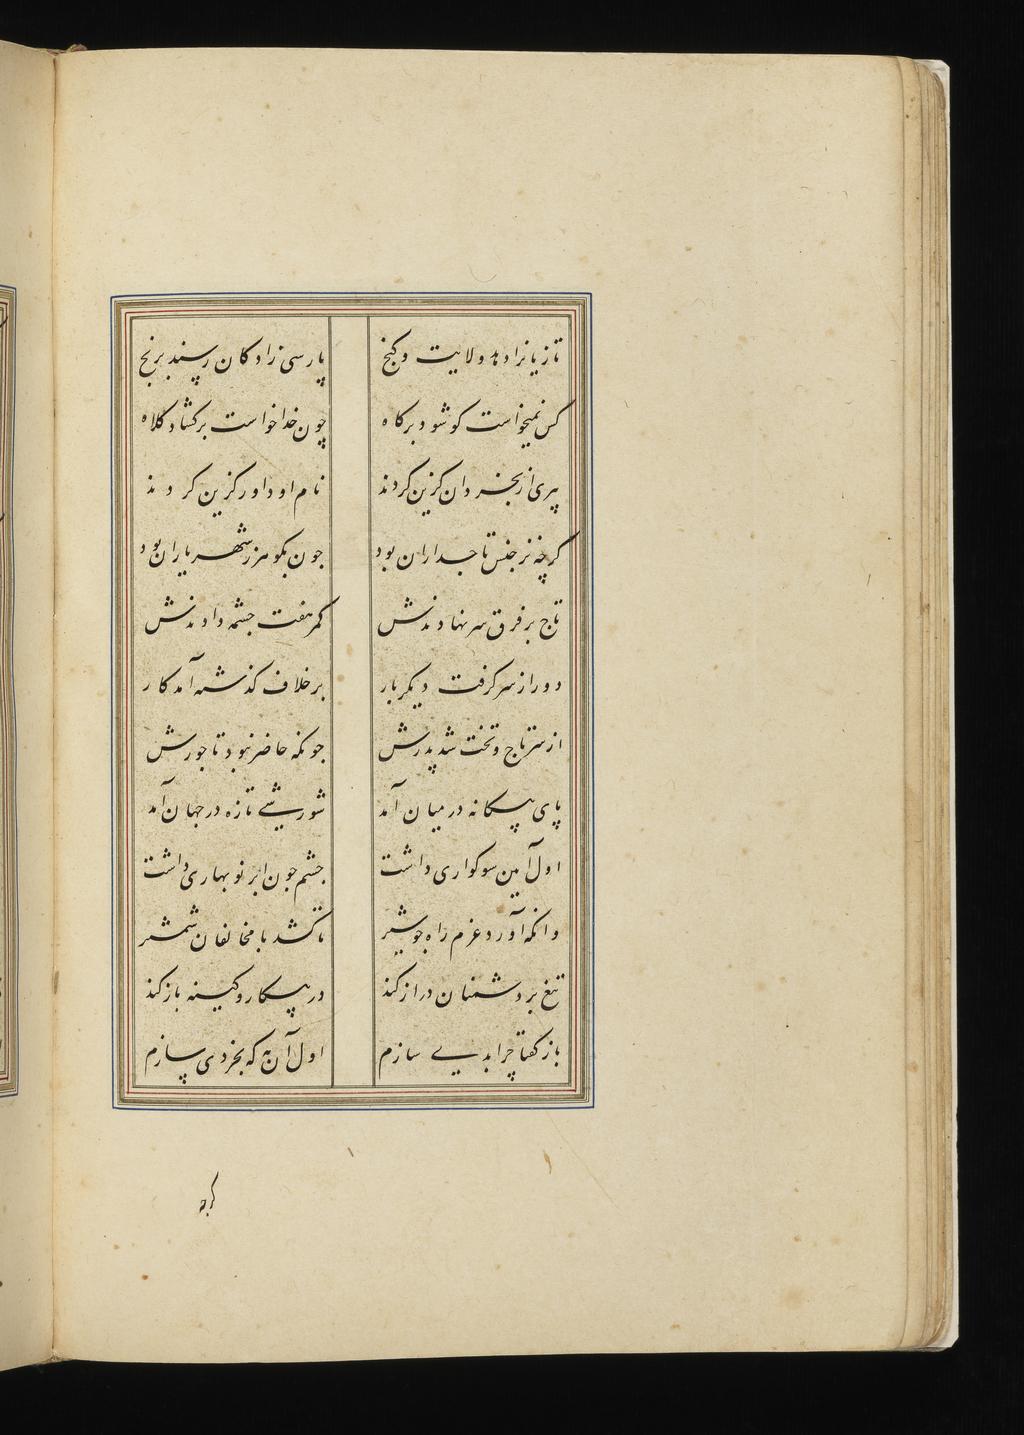 تازیانرا دهد ولایت و کنج پارسی زادکان رسند برنج
کس نمیخواست کو شود بر کاه چون خدا خواست بر کشاد کلاه
پیری از بخردان کزین کردند نام او داور کزین کردند
کرچه نز جنس تاجداران بود چون بکوهر ز شهریاران بود
تاج بر فرق سر نهادندش کمر هفت چشمه دادندش
دور از سر کرفت دیکر بار بر خلاف کذشته آمد کار
از سر تاج و تخت شد پدرش چونکه حاضر نبود تاجورش
پای بیکانه در میان آمد شورشی تازه در جهان آمد
اول آیین سوکواری داشت چشم چون ابر نوبهاری داشت
وانکه آورد عزم راه چو شیر تا کشد با مخالفان شمشیر
تیغ بر دشمنان دراز کند در پیکار و کینه باز کند
باز کفتا چرا بدی سازم اول آن به که بخردی سازم
کرچه